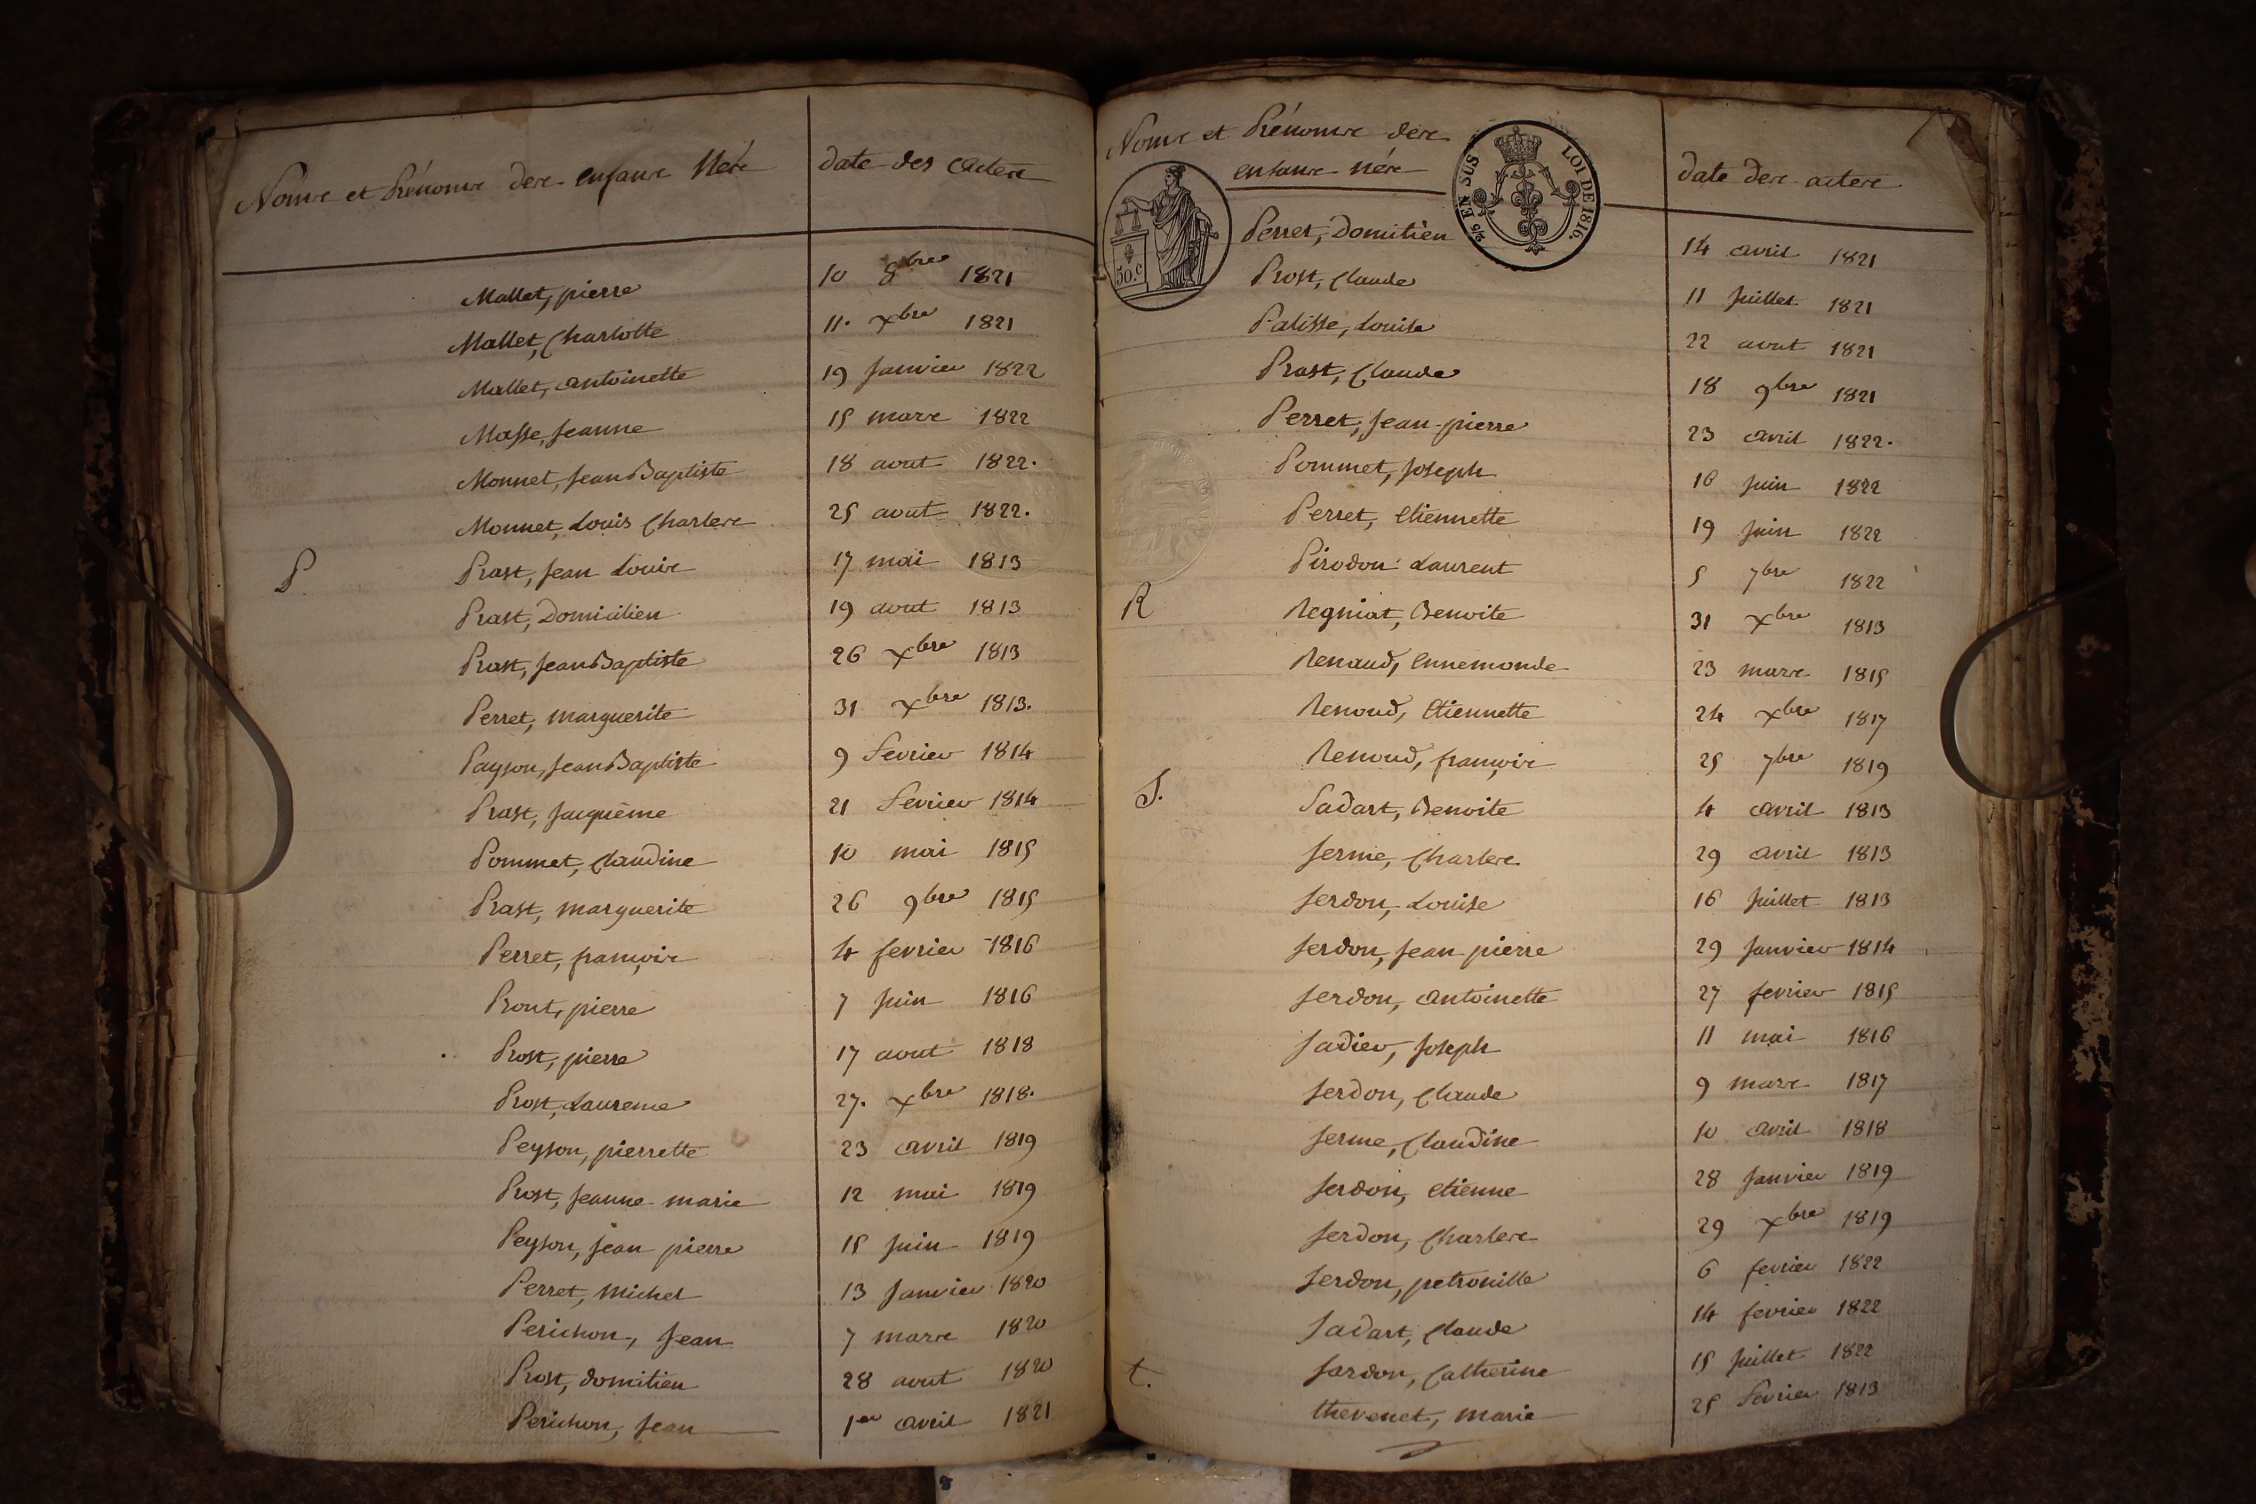 Noms et Prénoms des enfans Nés date des actes
Mallet, pierre 10 8bre 1821
Mallet, Charlotte 11. xbre 1821
Mallet, antoinette 19 Janvier 1822
Masse, Jeanne 15 mars 1822
Monnet, Jean Baptiste 18 aout 1822.
Monnet, Louis Charles 25 aout 1822.
P. Prast, Jean Louis 17 mai 1813
Prast, Domicilien 19 aout 1813
Prast, Jean Baptiste 26 xbre 1813
Perret, marguerite 31 xbre 1813.
Payson, Jean Baptiste 9 fevrier 1814
Prast, Jacquême 21 fevrier 1814
Pommet, Claudine 10 mai 1815
Prast, marguerite 26 9bre 1815
Perret, françois 4 fevrier 1816
Prout, pierre 7 Juin 1816
Prost, pierre 17 aout 1818
Prost, Laurence 27. xbre 1818.
Peyson, pierrette 23 avril 1819
Prost, Jeanne-marie 12 mai 1819
Peyson, jean pierre 15 Juin 1819
Perret, michel 13 Janvier 1820
Perichon, Jean 7 mars 1820
Prost, domitien 28 aout 1820
Perichon, Jean 1er avril 1821
Noms et Prénoms des
enfans nés date des actes
2/5 EN SUS LOI DE 1816.
50.c
Perret, Domitien 14 avril 1821
Prost, Claude 11 Juillet 1821
Palisse, Louise 22 aout 1821
Prast, Claude 18 9bre 1821
Perret, Jean-pierre 23 avril 1822.
Pommet, Joseph 16 Juin 1822
Perret, etiennette 19 Juin 1822
Pirodon Laurent 5 7bre 1822
R Regniat, Benoite 31 xbre 1813
Renaud, ennemonde 23 mars 1815
Renoud, Etiennette 24 xbre 1817
Renoud, françois 25 7bre 1819
S. Sadart, Benoite 4 avril 1813
Serme, Charles 29 avril 1813
Serdon, Louise 16 Juillet 1813
Serdon, Jean pierre 29 Janvier 1814
Serdon, antoinette 27 fevrier 1815
Sadier, Joseph 11 mai 1816
Serdon, Claude 9 mars 1817
Serme, Claudine 10 avril 1818
Serdon, etienne 28 Janvier 1819
Serdon, Charles 29 xbre 1819
Serdon, petronille 6 fevrier 1822
Sadart, Claude 14 fevrier 1822
Sardon, Catherine 15 Juillet 1822
t. thevenet, marie 25 fevrier 1813